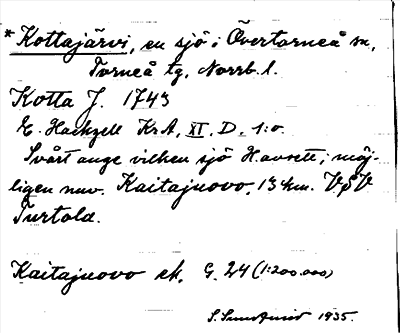 * Kottajärvi, en sjö i Övertorneå sn,
Torneå tg, Norrb. l.
Kotta J. 1743
E. Hackzell Kr. A, XI, D, 1:o.
Svårt ange vilken sjö H avsett; möj-
ligen nuv. Kaitajuovo, 13 km. V
Turtola.
Kaitajuovo ek. G. 24 (1:200.000)
S. 1935.